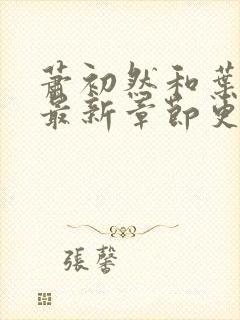 蕭初然和葉
最新章節更
張馨